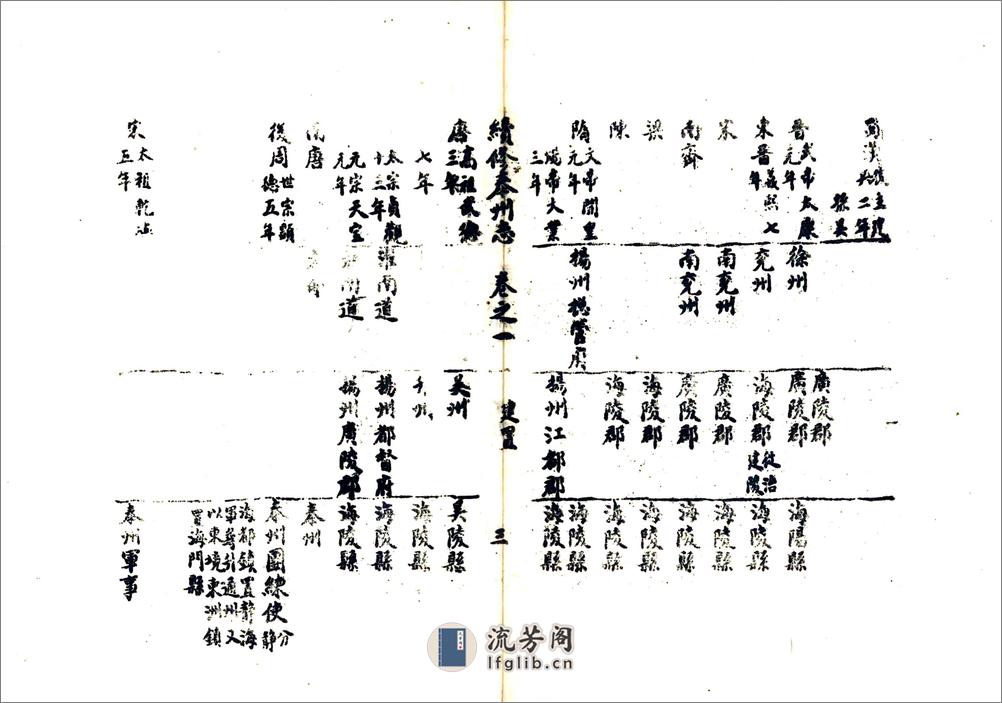 蜀漢 後主
二年
孫吳
廣陵郡
晉 武帝太康元年
徐州
廣陵郡
海陽縣
東晉 義熙七年
兗州
海陵郡 徙治建陵
海陵縣
宋
南兗州
廣陵郡
海陵縣
南齊
南兗州
廣陵郡
海陵縣
梁
海陵郡
海陵縣
陳
海陵郡
海陵縣
隋 文帝開皇元年
揚州總管府
海陵縣
煬帝大業三年
揚州江都郡
海陵縣
續修泰州志 卷之一 建置 三
唐 高祖武德三年
吳州
吳陵縣
七年
海陵縣
太宗貞觀十三年
淮南道
揚州都督府
海陵縣
元宗天宝元年
道
揚州廣陵郡
海陵縣
南唐
泰州
後周 世宗顯德五年
泰州團練使 分靜
海都鎮置靜海
軍尋引通州又
以東境東洲鎮
置海門縣
宋 太祖乾德五年
泰州軍事
流芳阁
lfglib.cn